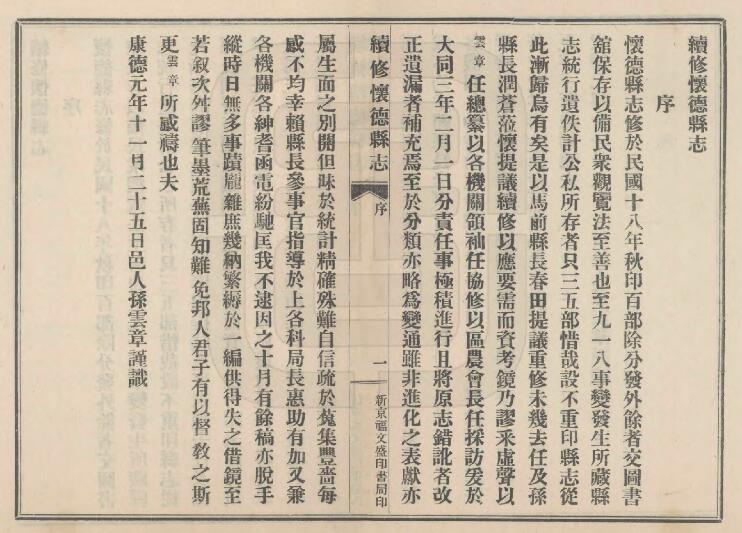 續修懷德縣志
序
懷德縣志修於民國十八年秋印百部除分發外餘者交圖書
舘保存以備民衆觀覽法至善也至九一八事變發生所藏縣
志統行遺佚計公私所存者只三五部惜哉設不重印縣志從
此漸歸烏有矣是以馬前縣長春田提議重修未幾去任及孫
縣長潤蒼蒞懷提議續修以應要需而資考鏡乃謬釆虛聲以
雲章任總纂以各機關領袖任協修以區農會長任採訪爰於
大同三年二月一日分責任事極積進行且將原志錯訛者改
正遺漏者補充焉至於分類亦略爲變通雖非進化之表獻亦
續修懷德縣志
序
一
新京福文盛印書局印
屬生面之別開但昧於統計精確殊難自信疏於蒐集豐嗇每
感不均幸賴縣長參事官指導於上各科局長惠助有加又兼
各機關各紳耆函電紛馳匡我不逮因之十月有餘稿亦脫手
縱時日無多事蹟龐雜庶幾納繁縟於一編供得失之借鏡至
若叙次舛謬筆墨荒蕪固知難免邦人君子有以督敎之斯
更雲章所感禱也夫
康德元年十一月二十五日邑人孫雲章謹識